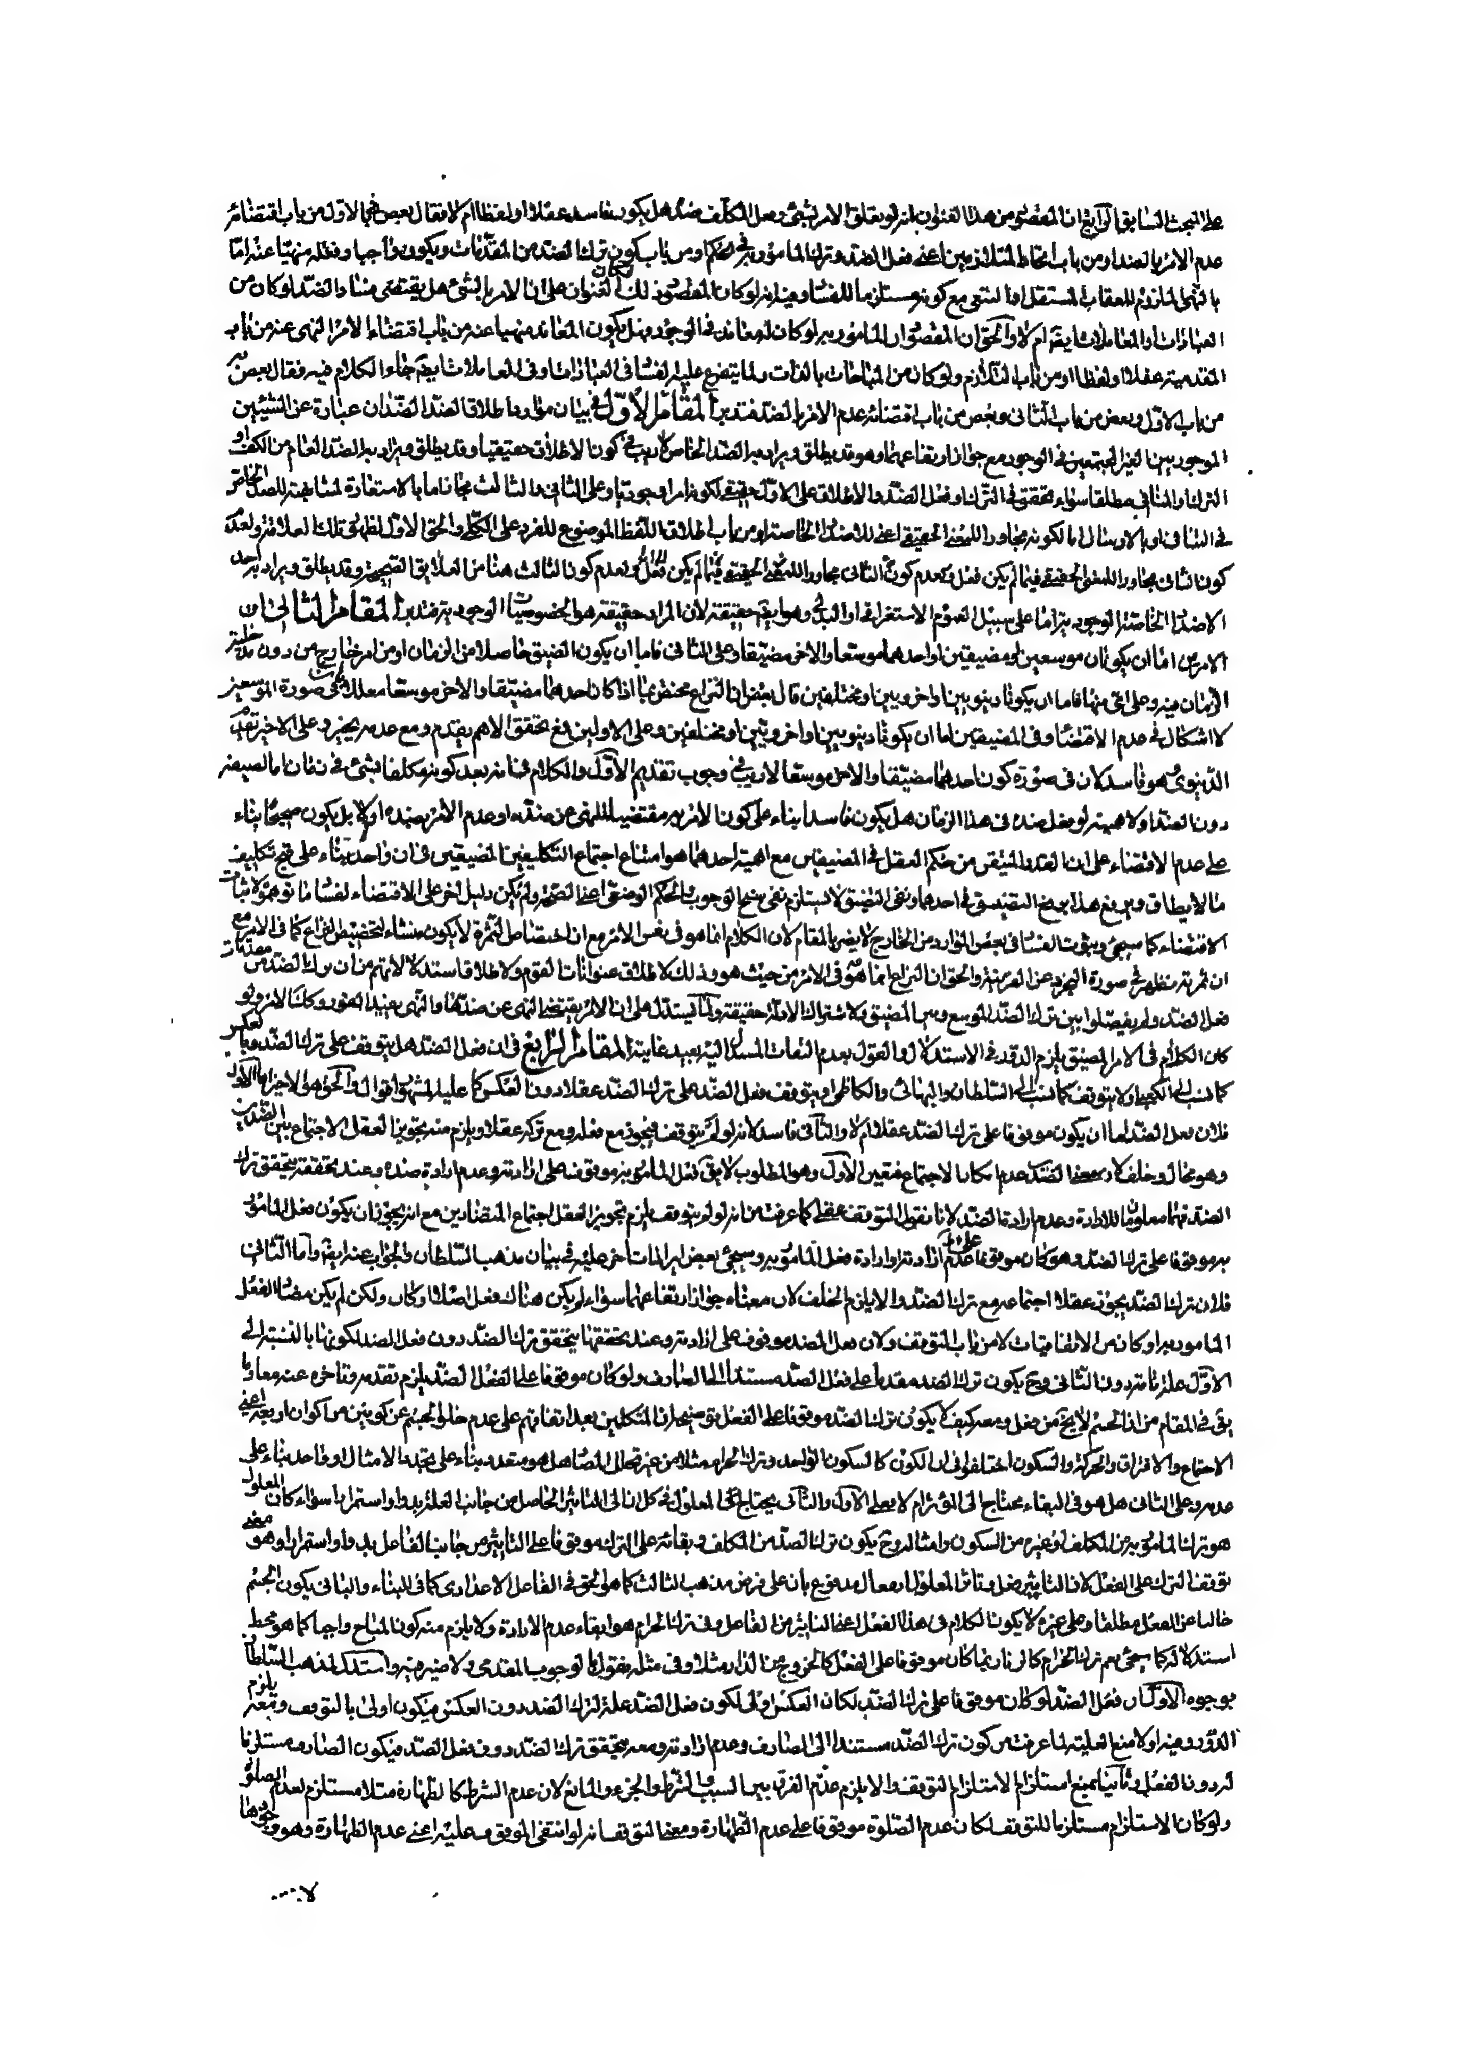 على المبحث السابق الرابع ان المقصود من هذا العنوان انه لو تعلق الامر بشئ وفعل المكلف ضده هل يكون فاسدا عقلا او لفظا ام لا فقال بعض فيما الاول من باب اقتضائه
عدم الامر بالضد او من باب اتحاد المتلازمين اعنى فعل الضد وترك المامور به فى الحكم او من باب كون ترك الضد من المقدمات ويكون واجبا وفعله منهيا عنه اما
بالنهى الملزوم للعقاب المستقل او التبعى مع كونه مستلزما للفساد وفيه انه لو كان المقصود ذلك لكان العنوان على ان الامر بالشئ هل يقتضى فساد الضد لو كان من
العبادات او المعاملات ايضا ام لا والحق ان المقصود ان المامور به لو كان له معاند فى الوجود فهل يكون المعاند منهيا عنه من باب اقتضاء الامر النهى عنه من باب
المقدمية عقلا او لفظا او من باب التلازم ولو كان من المباحات بالذات ولما يتفرع عليه الفساد فى العبادات وفى المعاملات ايضا جاء الكلام فيه فقال بعض
من باب الاول وبعض من باب الثانى وبعض من باب اقتضائه عدم الامر بالضد فتدبر المقام الاول فى بيان موارد اطلاق الضد الضدان عبارة عن الشيئين
الموجودين الغير المجتمعين فى الوجود مع جواز ارتفاعهما وهو قد يطلق ويراد به الضد الخاص لا ريب فى كون الاطلاق حقيقيا وقد يطلق ويراد به الضد العام من الكف او
الترك والمنافى مطلقا سواء تحقق فى الترك او فعل الضد والاطلاق على الاول حقيقى لكونه امرا وجوديا وعلى الثانى والثالث مجاز اما بالاستعارة لمشابهته للضد الخاص
فى التنافى او بالارسال اما لكونه مجاورا للمعنى الحقيقى اعنى للاضداد الخاصة او من باب اطلاق اللفظ الموضوع للفرد على الكلى والحق الاول لظهور تلك العلاقة ولعدم
كون الثانى مجاورا للمعنى الحقيقى فيما لم يكن فعل ولعدم كون الثالث هنا من العلايق الصحيحة وقد يطلق ويراد به احد
الاضداد الخاصة الوجودية اما على سبيل العموم الاستغراقى او البدلى وهو ايضا حقيقة لان المراد حقيقة هو الخصوصيات الوجودية فتدبر المقام الثالث ان
الامرين اما ان يكونان موسعين او مضيقين او احدهما موسعا والاخر مضيقا وعلى الثانى فاما ان يكون الضيق حاصلا من الزمان او من امر خارج من دون مدخلية
الزمان فيه وعلى اى منها فاما ان يكونا دنيويين او اخرويين او مختلفين قال بعض ان النزاع مختص بما اذا كان احدهما مضيقا والاخر موسعا معللا بان فى صورة الموسعين
لا اشكال فى عدم الاقتضاء وفى المضيقين اما ان يكونا دنيويين او اخرويين او مختلفين وعلى الاولين فمع تحقق الاهم يقدم ومع عدمه يخير وعلى الاخير تقديم
الدنيوى هو فاسد لان فى صورة كون احدهما مضيقا والاخر موسعا لا ريب فى وجوب تقديم الاول والكلام فى انه بعد كونه مكلفا بشئ فى زمان اما لضيقه
دون الضد او لاهميته لو فعل ضده فى هذا الزمان هل يكون فاسدا بناء على كون الامر به مقتضيا للنهى عن ضده او عدم الامر بضده او لا بل يكون صحيحا بناء
على عدم الاقتضاء على ان القدر المتيقن من حكم العقل فى المضيقين مع اهمية احدهما هو امتناع اجتماع التكليفين المضيقين فى ان واحد بناء على قبح تكليف
ما لا يطاق وهو يرفع هذا برفع التضيق فى احدهما ونفى التضيق لا يستلزم نفى الوجوب والحكم الوضعى اعنى الصحة ولم يكن دليل اخر على الاقتضاء لفساد ما توهموه لاثبات
الاقتضاء كما سيجئ وثبوت الفساد فى بعض الموارد من الخارج لا يضر بالمقام لان الكلام انما هو فى نفس الامر مع ان اختصاص الثمرة لا يكون منشاء لتخصيص النزاع كما فى الامر مع
ان ثمرته تظهر فى صورة التجرد عن القرينة والحق ان النزاع انما هو فى الامر من حيث هو وذلك لاطلاق عنوانات القوم ولاطلاق استدلالاتهم من ان ترك الضد من مقدمات
فعل الضد ولم يفصلوا بين ترك الضد الموسع وبين المضيق ولاشتراك الادلة حقيقة ولما يستدل على ان الامر يقتضى النهى عن ضده والنهى يفيد الفور وكذا الامر ولو
كان الكلام فى الامر المضيق يلزم الدور فى الاستدلال والقول بعدم التفات المستدل اليه بعيد غايته المقام الرابع فى ان فعل الضد هل يتوقف على ترك الضد وبالعكس
كما نسب الى الكعبى او لا يتوقف كما نسب الى السلطان والبهائى والكاظمى او يتوقف فعل الضد على ترك الضد عقلا دون العكس كما عليه المشهور اقوال والحق هو الاخير اما الاول
فلان فعل الضد اما ان يكون موقوفا على ترك الضد عقلا ام لا والثانى فاسد لانه لو لم يتوقف فيجوز مع فعله ومع تركه عقلا ويلزم منه تجويز العقل الاجتماع بين الضدين
وهو محال وخلف لان معنى الضد عدم امكان الاجتماع فتعين الاول وهو المطلوب لا يق فعل المامور به موقوف على ارادته وعدم ارادة ضده وعند تحققه يتحقق ترك
الضد فهما معلولان للارادة وعدم ارادة الضد لانا نقول التوقف عقلى كما عرفت من انه لو لم يتوقف يلزم تجويز العقل اجتماع المتضادين مع انه يجوز ان يكون فعل المامور
به موقوفا على ترك الضد وهو كان موقوفا على عدم ارادته او ارادة فعل المامور به وسيجئ بعض ايرادات اخر عليه فى بيان مذهب السلطان والجواب عنه ايضا واما الثانى
فلان ترك الضد يجوز عقلا اجتماعه مع ترك الضد والا يلزم الخلف لان معناه جواز ارتفاعهما سواء لم يكن هناك فعل اصلا او كان ولكن لم يكن مضادا لفعل
المامور به او كان من الاتفاقيات لا من باب التوقف ولان فعل الضد موقوف على ارادته وعند تحققها يتحقق ترك الضد دون فعل الضد لكونها بالنسبة الى
الاول علة تامة دون الثانى وح يكون ترك الضد مقدما على فعل الضد مستندا الى الصارف ولو كان موقوفا على الفعل الضد يلزم تقدمه وتاخره عنه معا وما
بقى فى المقام من ان الجسم لا يخ من فعل ومعه كيف لا يكون ترك الضد موقوفا على الفعل توضيحه ان المتكلمين بعد اتفاقهم على عدم خلو الجسم عن كونين من اكوان اربعة اعنى
الاجتماع والافتراق والحركة والسكون اختلفوا فى ان الكون كالسكون الواحد وترك الحرام مثلا من غير تخلل الفصل هل هو متعدد بناء على تجدد الامثال او واحد بناء على
عدمه وعلى الثانى هل هو فى البقاء محتاج الى المؤثر ام لا فعلى الاول والثانى يحتاج المعلول فى كل ان الى التاثير الحاصل من جانب العلة بدوا واستمرارا سواء كان المعلول
هو ترك المامور به من المكلف او غيره من السكون وامثاله وح يكون ترك الضد من المكلف وبقائه على الترك موقوفا على التاثير من جانب الفاعل بدوا واستمرارا وهو معنى
توقف الترك على الفعل لان التاثير فعل وتاثر المعلول انفعال مدفوع بان على فرض مذهب الثالث كما هو الحق فى الفاعل الاعدادى كما فى البناء والبانى يكون الجسم
خاليا عن الفعل مطلقا وعلى غيره لا يكون الكلام فى هذا الفعل اعنى التاثير من الفاعل وفى ترك الحرام هو ابقاء عدم الارادة ولا يلزم منه كون المباح واجبا كما هو محط
استدلاله كما سيجئ نعم ترك الحرام كالزنا ربما كان موقوفا على الفعل كالخروج من الدار مثلا وفى مثله نقول بالوجوب المقدمى ولا ضير فيه واستدل لمذهب السلطان
بوجوه الاول ان فعل الضد لو كان موقوفا على ترك الضد لكان العكس اولى لكون فعل الضد علة لترك الضد دون العكس فيكون اولى بالتوقف ومعه يلزم
الدور وفيه اولا منع العلية لما عرفت من كون ترك الضد مستندا الى الصارف وعدم ارادته ومعه يتحقق ترك الضد دون فعل الضد فيكون الصارف مستلزما
له دون الفعل وثانيا بمنع استلزام الاستلزام التوقف والا يلزم عدم الفرق بين السبب والشرط والجزء والمانع لان عدم الشرط كالطهارة مثلا مستلزم لعدم الصلوة
ولو كان الاستلزام مستلزما للتوقف لكان عدم الصلوة موقوفا على عدم الطهارة ومعنى التوقف انه لو انتفى الموقوف عليه اعنى عدم الطهارة وهو وجودها
لا